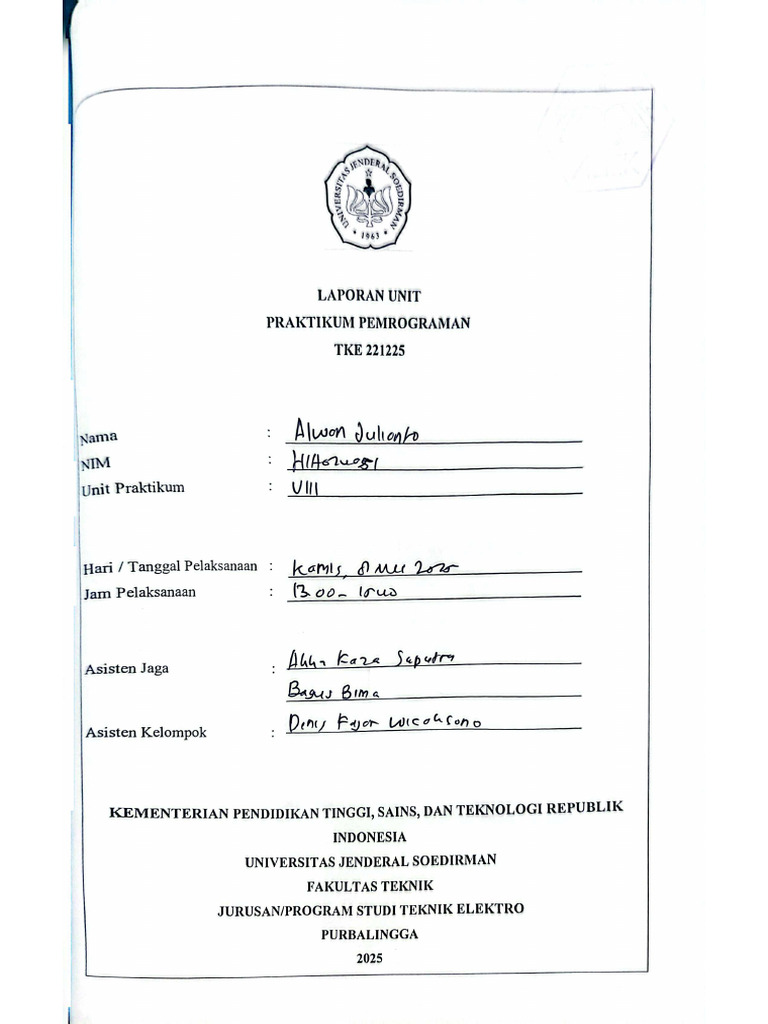 UNIVERSITAS JENDERAL SOEDIRMAN
1963
LAPORAN UNIT
PRAKTIKUM PEMROGRAMAN
TKE 221225
Nama : Alwan Julianto
NIM :
Unit Praktikum : VIII
Hari / Tanggal Pelaksanaan : Kamis, 8 Mei 2025
Jam Pelaksanaan : 13.00 -
Asisten Jaga : Kaza Saputra
Bagus Bima
Asisten Kelompok : Denis Fajar Wicaksono
KEMENTERIAN PENDIDIKAN TINGGI, SAINS, DAN TEKNOLOGI REPUBLIK
INDONESIA
UNIVERSITAS JENDERAL SOEDIRMAN
FAKULTAS TEKNIK
JURUSAN/PROGRAM STUDI TEKNIK ELEKTRO
PURBALINGGA
2025